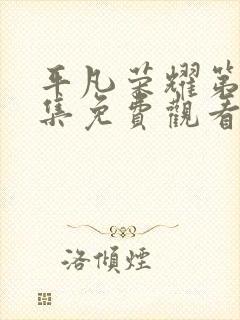 平凡荣耀第
集免費觀看
洛傾煙